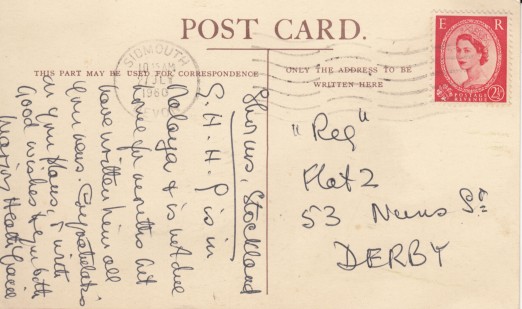 POST CARD.
THIS PART MAY BE USED FOR CORRESPONDENCE
ONLY THE ADDRESS TO BE
WRITTEN HERE
SIDMOUTH
10 15 AM
1960
DEVON
E R
POSTAGE
REVENUE
2½
Stockland
S. H. H. P is in
Malaya & is not due
home for months but
have written him all
your news. Congratulations
on your plans, &
Good wishes to you both
Marion
"Reg"
Flat 2
53 St
DERBY